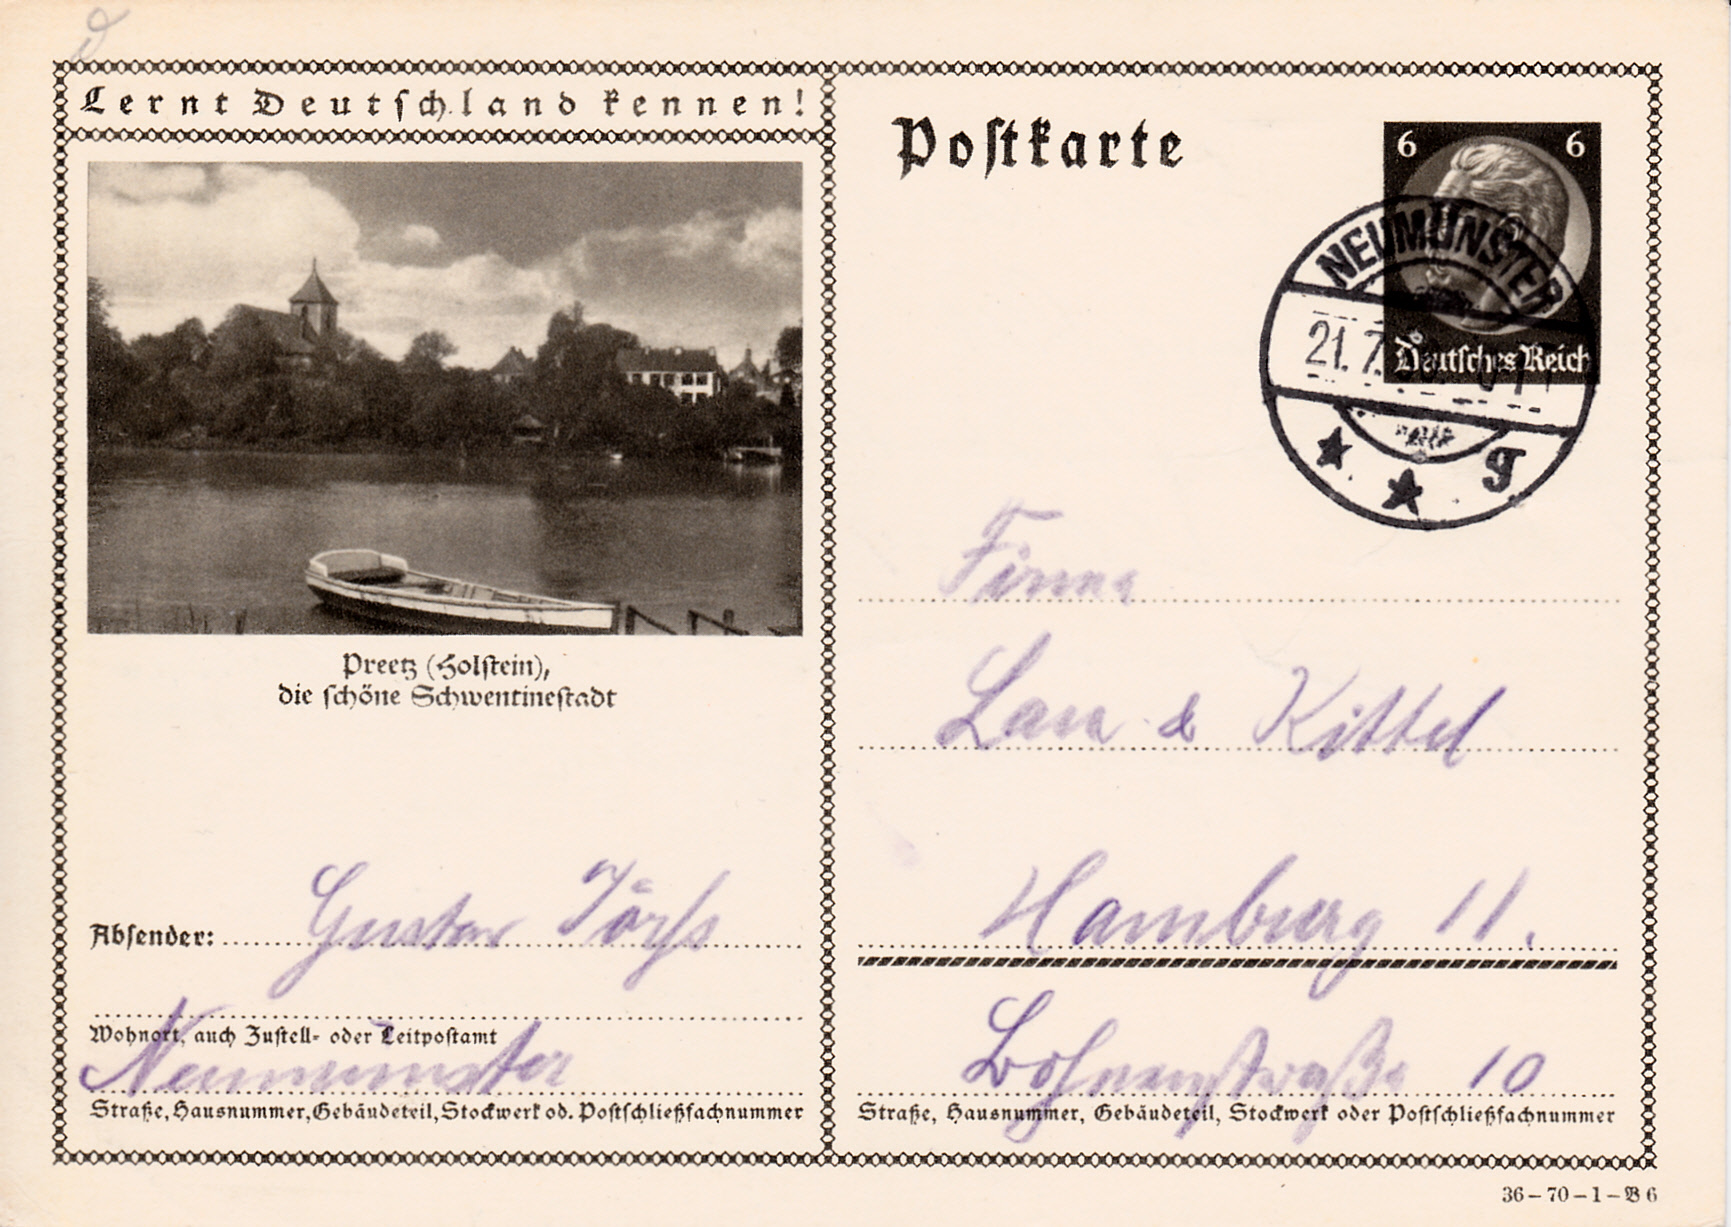 Lernt Deutschland kennen!
Preetz (Holstein),
die schöne Schwentinestadt
Absender: Gustav
Wohnort, auch Zustell- oder Leitpostamt
Neumünster
Straße, Hausnummer, Gebäudeteil, Stockwerk od. Postschließfachnummer
Postkarte
6 6
Deutsches Reich
NEUMÜNSTER
21.7.
Firma
& Kittel
Hamburg 11.
10
Straße, Hausnummer, Gebäudeteil, Stockwerk oder Postschließfachnummer
36-70-1-B 6